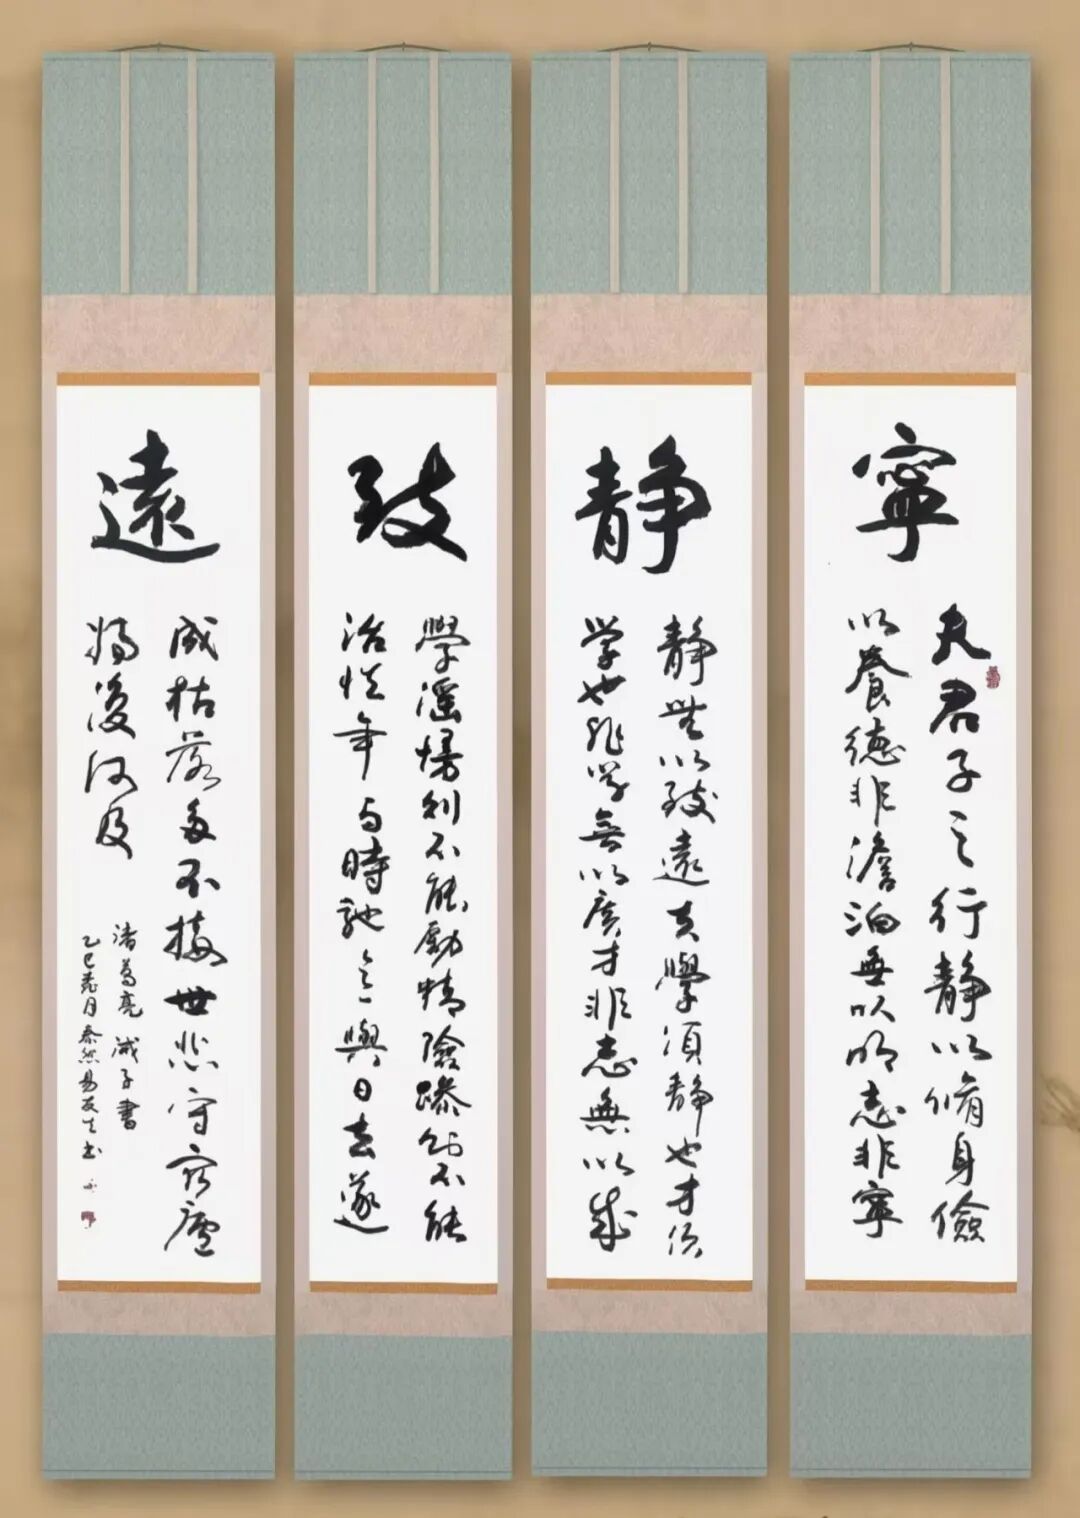 寧
夫君子之行静以脩身儉
以養德非澹泊無以明志非寧
静
静無以致遠夫學須静也才須
学也非学無以广才非志無以成
致
學滛慢則不能勵精險躁則不能
治性年与時馳意與日去遂
遠
成枯落多不接世悲守窮廬
將復何及
諸葛亮 誡子書
乙巳 月泰然易友生书